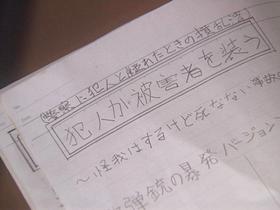 (警察に犯人と疑われたときの攪乱法)
犯人が被害者を装う
~怪我はするけど死なない事故の
弾銃の暴発バージョン~